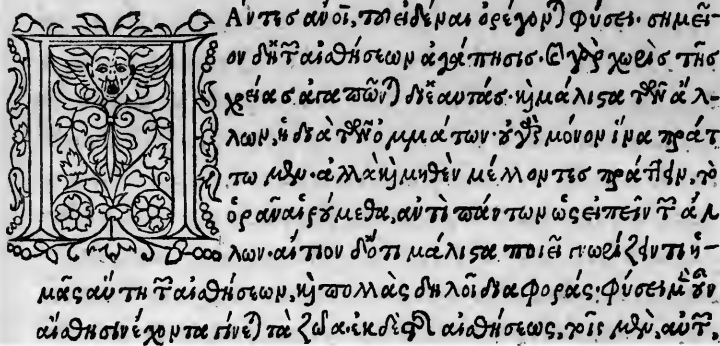 ΠΑντες ἄνοι, τοῦ εἰδέναι ὀρέγονται φύσει. σημεῖ-
ον δὲ ἡ τῶν αἰσθήσεων ἀγάπησις. καὶ γὰρ χωρὶς τῆς
χρείας ἀγαπῶνται δι' ἑαυτάς. καὶ μάλιστα τῶν ἄλ-
λων, ἡ διὰ τῶν ὀμμάτων. οὐ γὰρ μόνον ἵνα πράτ
τωμεν. ἀλλὰ καὶ μηθὲν μέλλοντες πράττειν, τὸ
ὁρᾶν αἱρούμεθα, ἀντὶ πάντων ὡς εἰπεῖν τῶν ἄλ-
λων. αἴτιον δ' ὅτι μάλιστα ποιεῖ γνωρίζειν τι ἡ-
μᾶς αὕτη τῶν αἰσθήσεων, καὶ πολλὰς δηλοῖ διαφοράς. φύσει μὲν οὖν
αἴσθησιν ἔχοντα γίνεται τὰ ζῷα. ἐκ δὲ τῆς αἰσθήσεως, τοῖς μὲν, αὐτῶν,